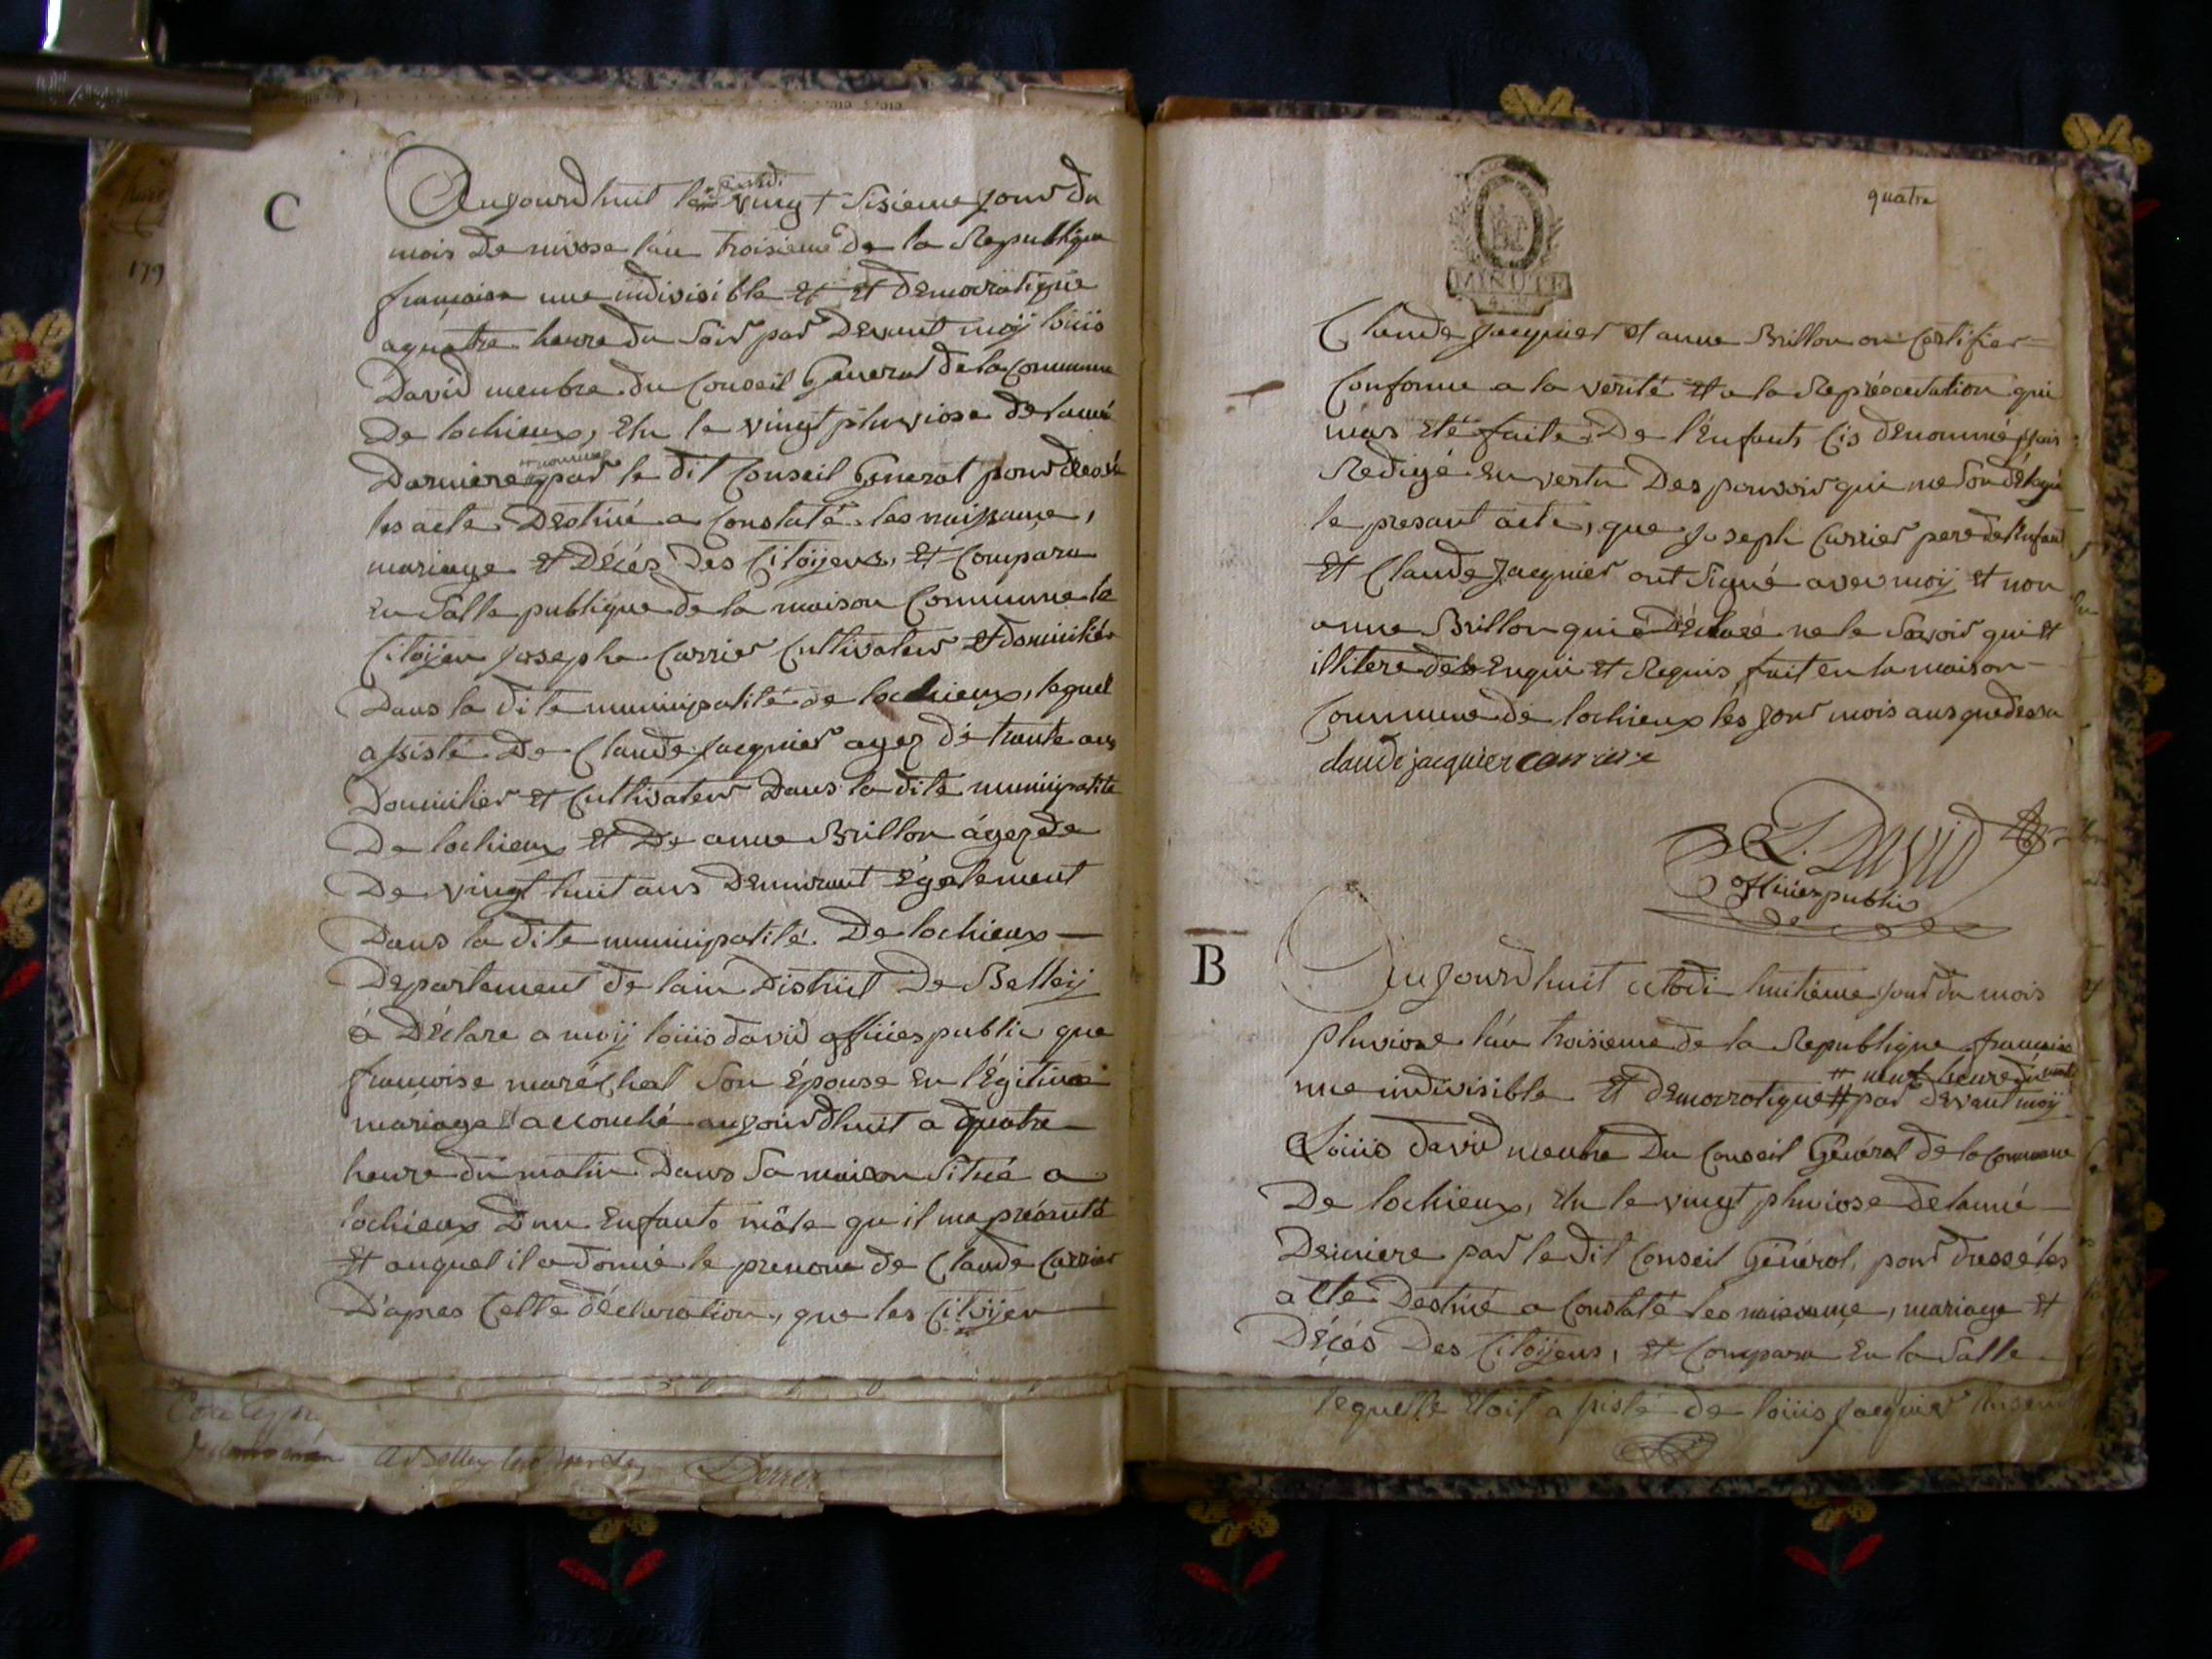 C
Aujourdhuit le sextidi vingt sisieme jour du
mois de nivose l'an troisieme de la Republique
françoise une indivisible et et democratique
a quatre heure du soir par devant moÿ louis
David menbre du Conseil General de la Commune
De lochieux, elu le vingt pluviose de lanné
Darniere par le dit Conseil General pour dressé
les acte Destiné a Constaté les naissance,
mariage et Décés Des Citoÿens, et Comparu
en Salle publique de la maison Commune le
Citoÿen Joseph Carrier Cultivateur et domicilié
Dans la dite municipalité de lochieux, lequel
assisté De Claude Jacquier agez de trante ans
Domicilier et Cultivateur Dans la dite municipalité
De lochieux et De anne Brillon ágez de
De vingt huit ans Demeurant également
Dans la dite municipalité De lochieux
Departement de lain District De Belleÿ
à Déclare a moÿ louis david officier public que
francoise maréchal Son épouse en légitime
mariage a accouché aujourdhuit a quatre
heure du matin Dans Sa maison Situé a
lochieux Dun Enfant mâle qu il ma présenté
et auquel il a donné le prenom de Claude Carrier
D'apres Cette déclaration, que les Citoÿen
quatre
MINUTE
Claude Jacquier et anne Brillon on Certifier
Conforme a la verité et a la Représentation qui
mas eté faite De l'Enfant Cis denommé jais
Redigé en vertu Des pouvoir qui me Son délégué
le presant acte, que Joseph Carrier pere de l'enfant
et Claude Jacquier ont Signé avec moÿ et non
anne Brillon qui a déclaré ne le Savoir qui et
illitere de Enqui et Requis fait en la maison
Commune de lochieux lés jour mois ans que dessu
claude jacquier carrier
L. David
officier public
B
Aujourdhuit octodi huitieme jour du mois
pluviose l'an troisieme de la Republique francaise
# neuf heure du matin
une indivisible et democratique # par devant moÿ
Louis david menbre Du Conseil Général de la Commune
De lochieux, elu le vingt pluviose de lanné
Derniere par le dit Conseil Général, pour dressé les
acte Destiné a Constaté les naissance, mariage et
Décés Des Citoÿens, et Comparu en la Salle
lequelle etoit assisté de louis Jacquier